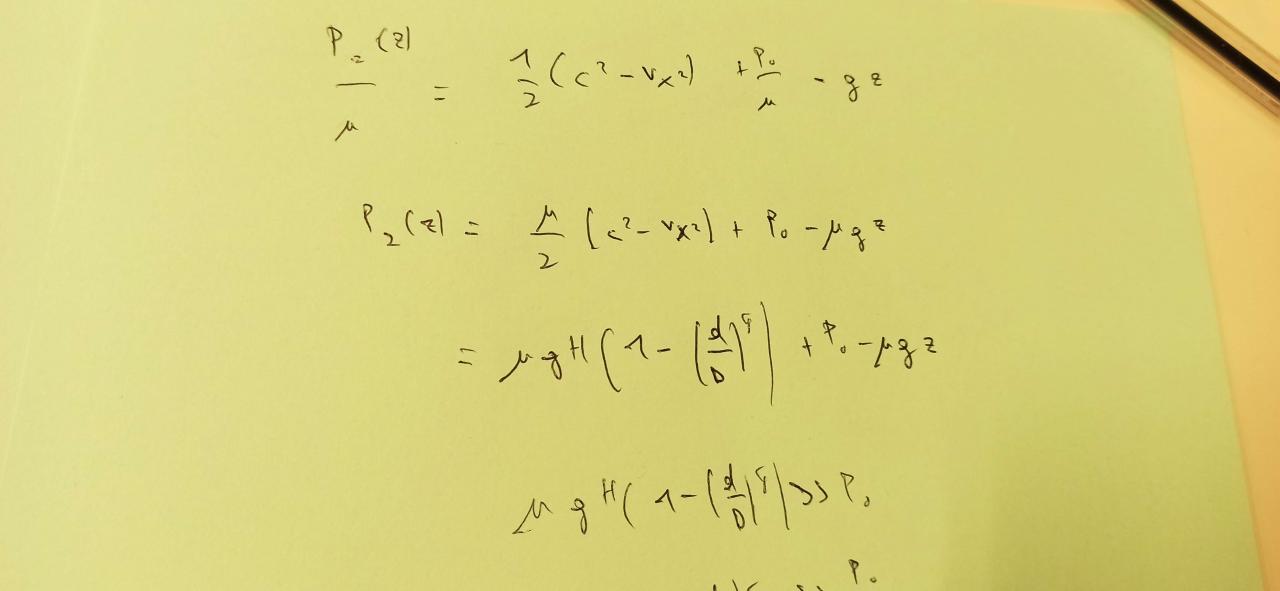 P₂(z)/μ = 1/2 (c² - vx²) + P₀/μ - gz
P₂(z) = μ/2 (c² - vx²) + P₀ - μgz
= μgH(1 - (d/D)⁴) + P₀ - μgz
μgH(1 - (d/D)⁴) >> P₀
>> P₀